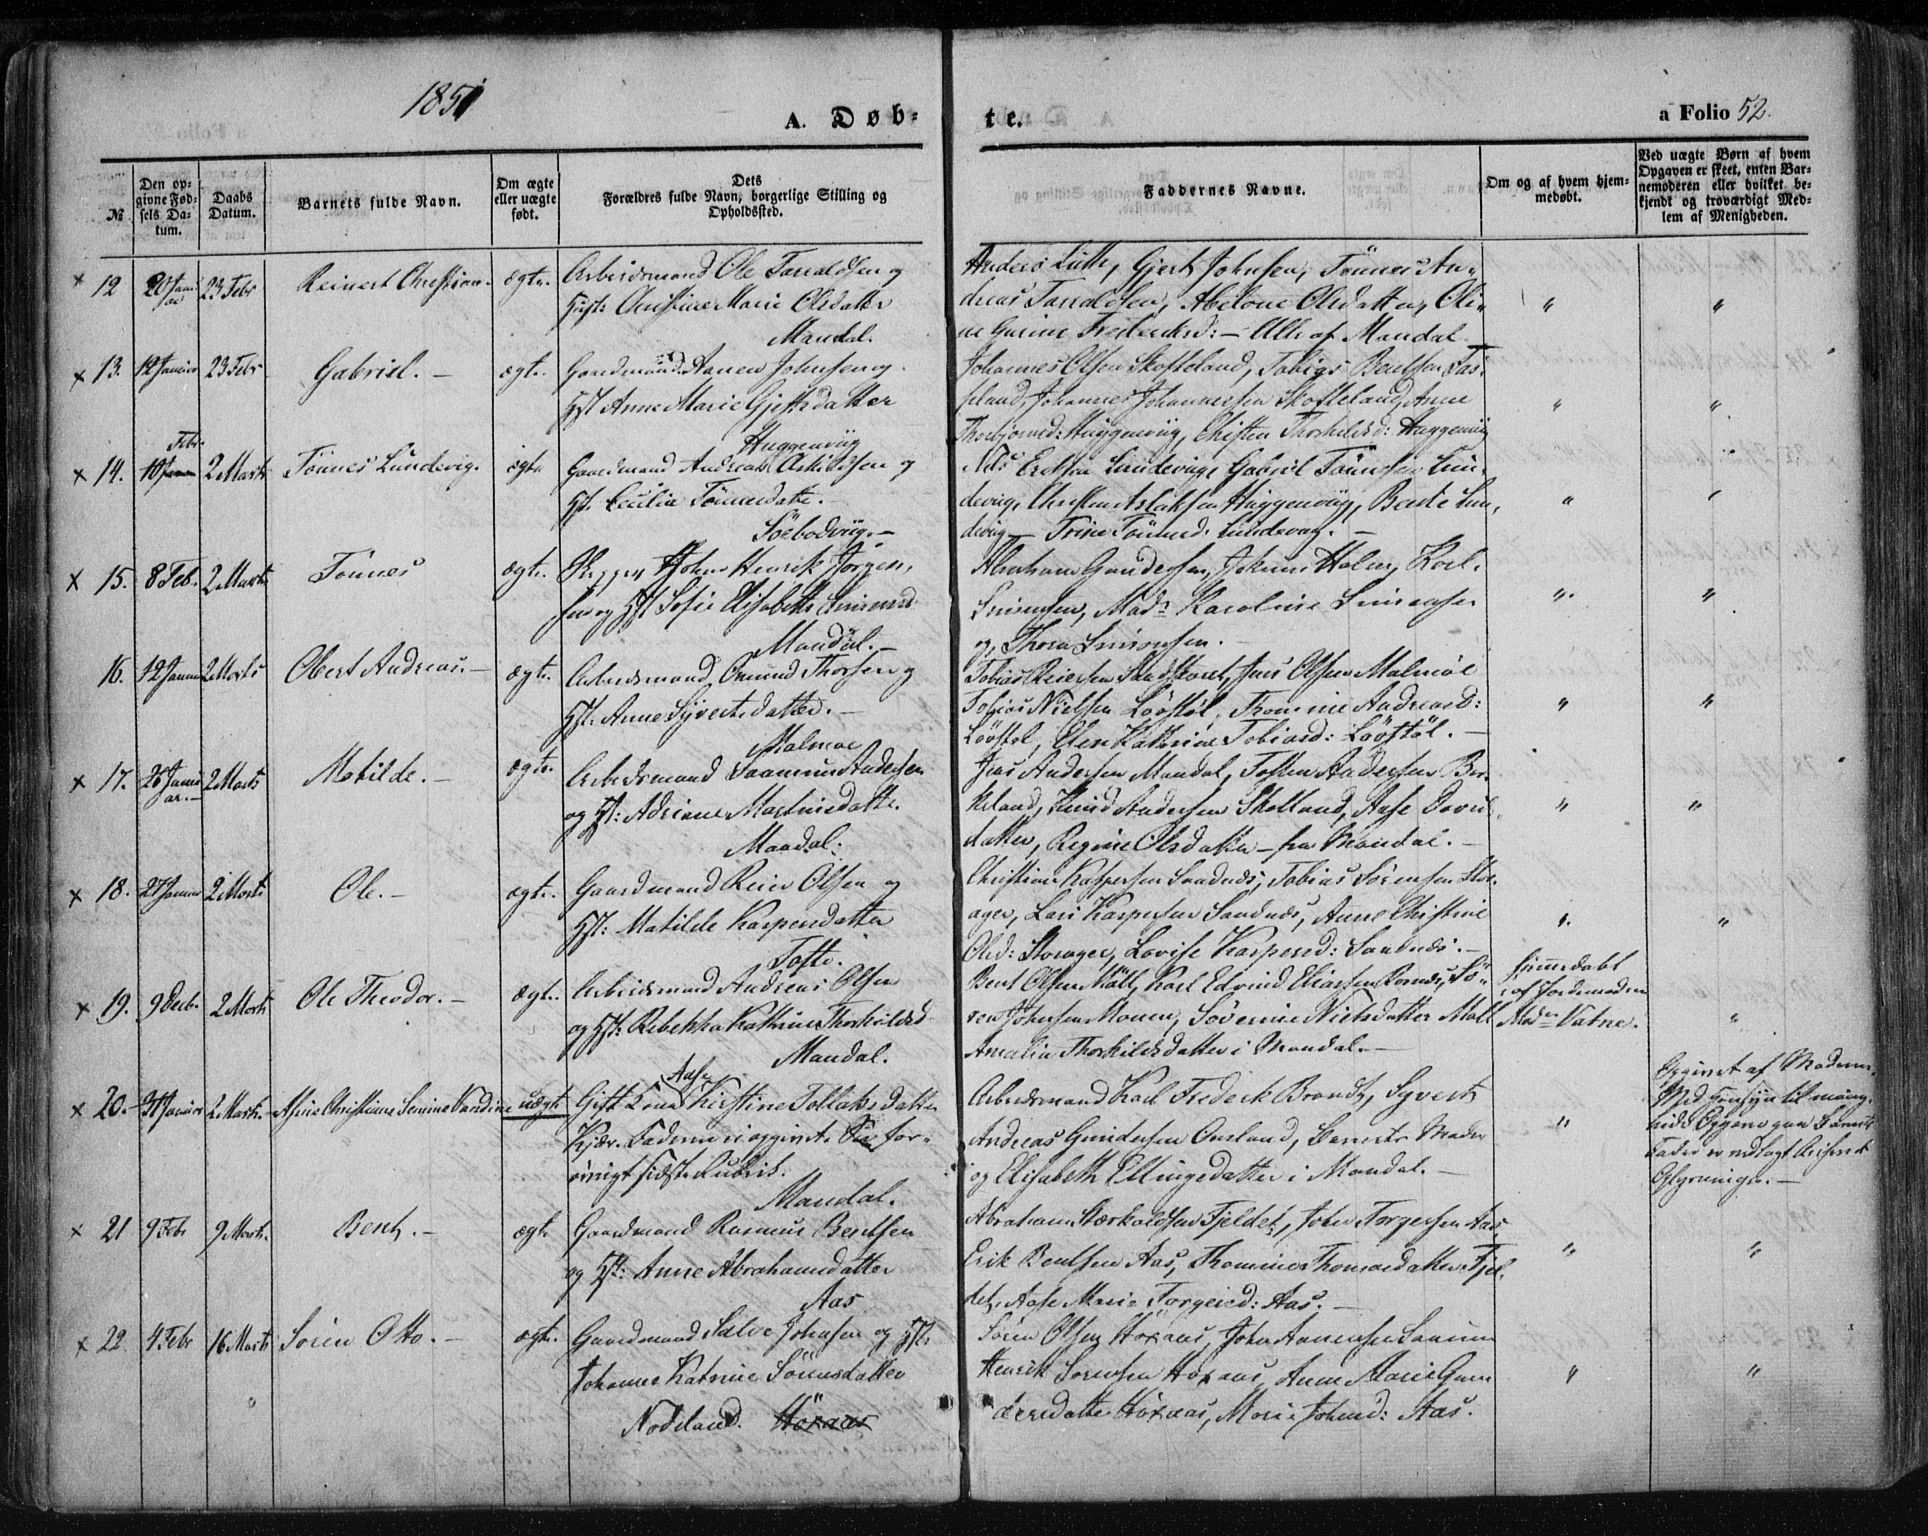 1851
A. Døb-
te.
a Folio 52.
№
Den opgivne Fødsels Datum.
Daabs Datum.
Barnets fulde Navn.
Om ægte eller uægte født.
Dets Forældres fulde Navn, borgerlige Stilling og Opholdssted.
Faddernes Navne.
Om og af hvem hjemmedøbt.
Ved uægte Børn af hvem Opgaven er skeet, enten Barnemoderen eller hvilket bekjendt og troværdigt Medlem af Menigheden.
× 12 20 Januar 23 Febr Reinert Christian. ægte. Arbeidsmand Ole Tarraldsen og
Christine Marie Olsdatter
Mandal.
Gjert Johnsen, Tönnes An-
dreas Tarraldsen, Abelone Olsdatter, Oli-
ne Gurine Frederiksd: – Alle af Mandal
" "
× 13. 12 Januar 23 Febr Gabriel. – ægte. Gaardmand Aanen Johnsen og
Hst Anne Marie Gjertsdatter
Huggenviig
Johannes Olsen Skofteland, Tobias Bentsen Fas-
seland, Johannes Johannessen Skofteland, Anne
Thorbjørnsd: Huggenviig, Thorkildsd: Huggenviig
" "
× 14. Febr 10 2 Marts Tönnes Lundevig. ægte Gaardmand Andreas Aslaksen og
Hst. Cecilia Tönnesdatter. –
Söebodviig. –
Nils Eriksen Lundevig, Gabriel Tönnesen Lun-
devig, Christen Aslaksen Huggenviig, Berte Lun-
devig – Trine Tönnesd: Lundevig. –
" "
× 15. 8 Feb. 2 Marts Tönnes ægte. Skipper Johan Henrik Jörgen-
sen og Hst Sofie Elisabeth
Mandal. –
Abraham Gundersen, Holm, Karl
Simonsen, Mad. Karoline Simonsen
og Thora Simonsen. –
" "
16. 12 Januar 2 Marts Obert Andreas. – ægte. Arbeidsmand Omund Thorsen og
Hst: Anne Syvertsdatter. –
Malmøe
Tobias Reiersen Jens Olsen Malmöe
Tobias Nielsen Lööstöl, Tromine Andreasd:
Lööstöl, Elen Kathrine Tobiasd: Lööstöl. –
" "
× 17. 26 Januar. – 2 Marts Matilde. – ægte. Arbeidsmand Andersen
og Hst: Adriane Martinsdatter.
Mandal.
Jens Andersen Mandal, Andersen
Andersen Aase
datter, Regine Olsdatter – fra Mandal. –
" "
× 18. 27 Januar 2 Marts Ole. – ægte. Gaardmand Reier Olsen og
Hst: Matilde Kaspersdatter
Tofte.
Christian Kaspersen Sandnæs, Tobias Sörensen Stor-
ager, Lars Kaspersen Sandnæs, Anne Christine
Olsd: Storager, Lovise Kaspersd: Sandnæs. –
" "
× 19. 9 Decb. 2 Marts Ole Theodor. – ægte. Arbeidsmand Andreas Olsen
og Hst: Rebekka Kathrine Thorkildsd
Mandal.
Bent Olsen Möll, Karl Edvind Eliassen Sö-
ren Johnsen Monen, Söverine Nielsdatter Möll
Amalia Thorkildsdatter i Mandal. –
hjemmedøbt
af Jordemoderen
Mad. Vatne. "
× 20. – 31 Januar 2 Marts. Christiane uægte Gift Kone Aase Kirstine Tollaksdatter
Kjær. Faderen ei opgivet. for-
övrigt sidste Rubrik.
Mandal.
Arbeidsmand Karl Frederik Brandt, Syvert
Andreas Gundersen Mader
og Elisabeth Ellingsdatter i Mandal. –
"
Opgivet af Moderen.
Med Hensyn til
Opgave paa Barnets
Fader er
Oplysninger. –
× 21 9 Febr 9 Marts. Bent. – ægte Gaardmand Rasmus Bentsen
og Hst: Anne Abrahamsdatter
Aas
Abraham Fjeldet, John Torgersen Aas,
Erik Bentsen Aas, Tromine Thomasdatter Fjel-
det, Aase Marie Torgersd: Aas. –
" "
× 22. 4 Febr 16 Marts Sören Otto. – ægte. Gaardmand Salve Johnsen og Hst:
Johanne Katrine Sörensdatter
Nodeland. Höxaas
Sören Olsen Höxaas, John
Henrik Sörensen Höxaas, Anne Marie Gun-
dersdatter Höxaas, Marie Johnsd: Aas.
" "